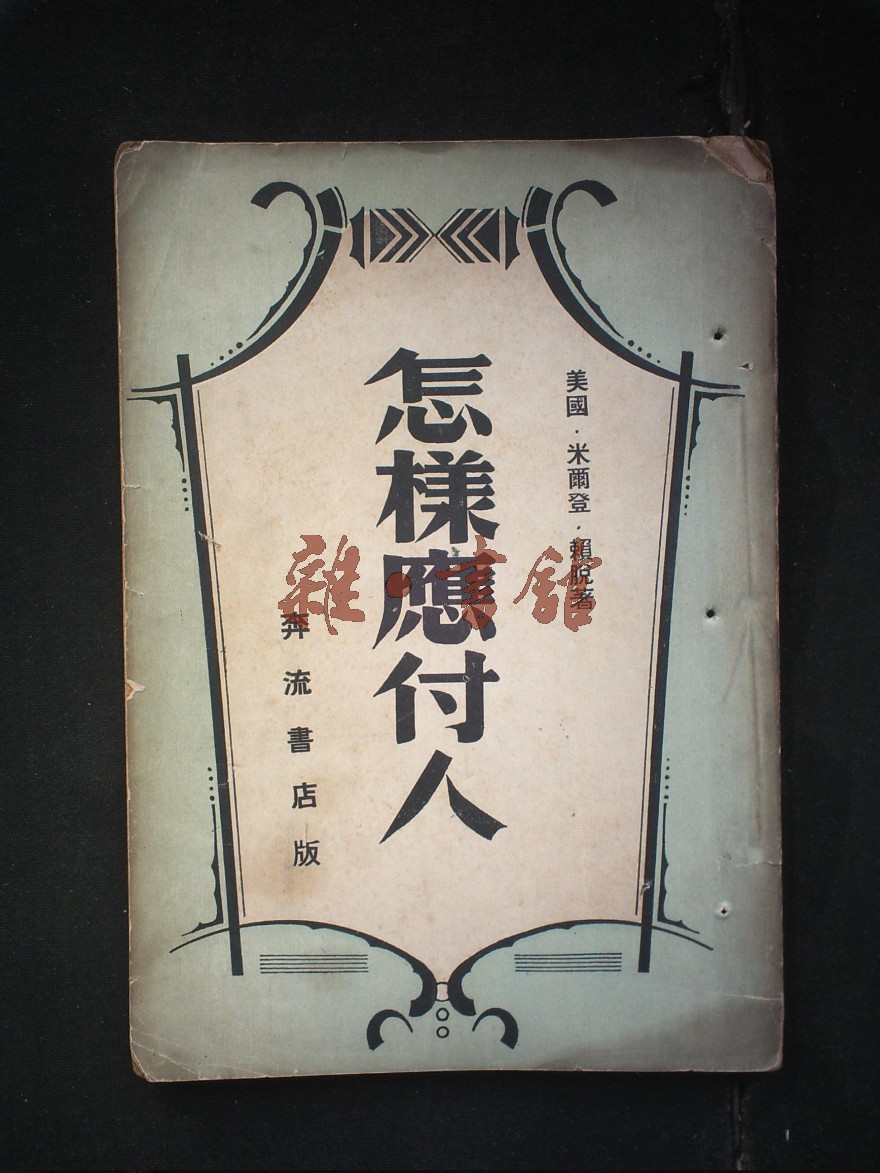 美國·米爾登·賴脫著
怎樣應付人
奔流書店版
雜·書館